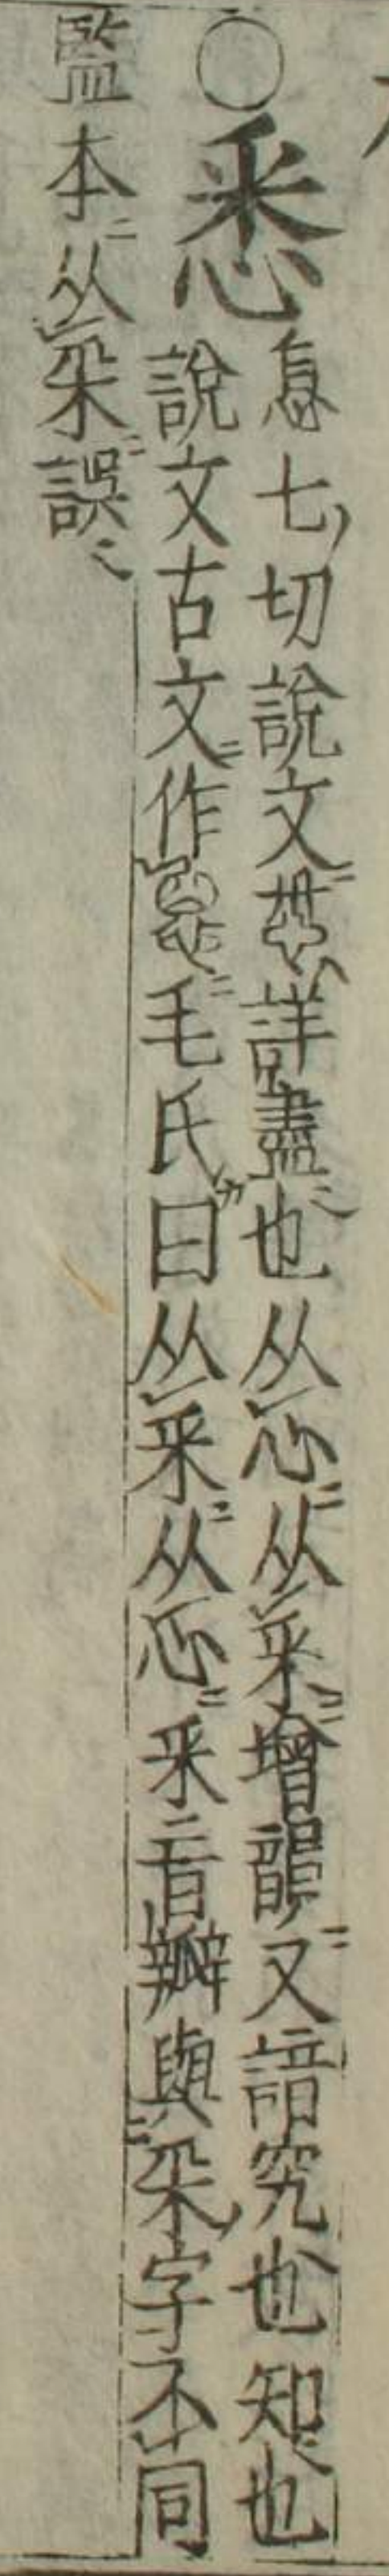 ○悉
息七切說文悉詳盡也从心从釆增韻又諳究也知也
說文古文作毛氏曰从釆从心釆音瓣與采字不同
監本从采誤